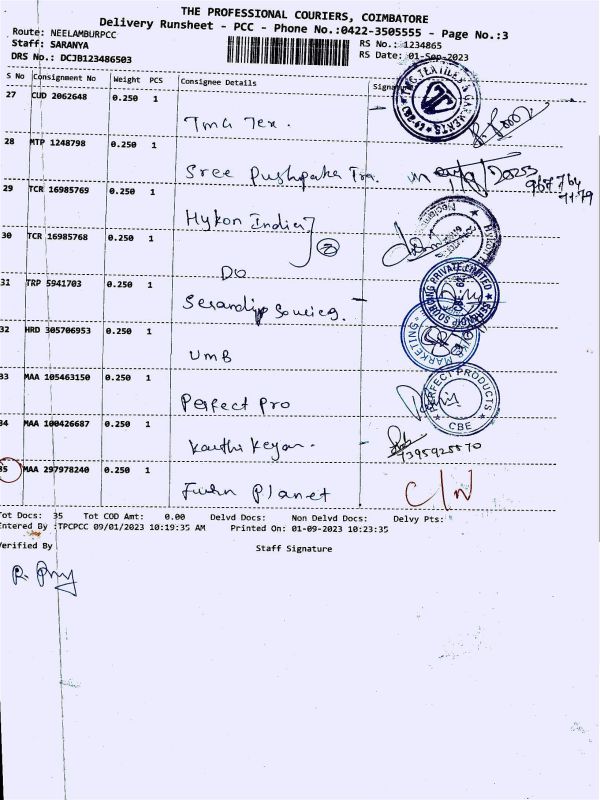 THE PROFESSIONAL COURIERS, COIMBATORE
Delivery Runsheet - PCC - Phone No.:0422-3505555 - Page No.:3
Route: NEELAMBURPCC
RS No.: 1234865
Staff: SARANYA
RS Date: 01-Sep-2023
DRS No.: DCJB123486503
S No Consignment No Weight PCS Consignee Details Signature
27 CUD 2062648 0.250 1
Tmg Tex.
28 MTP 1248798 0.250 1
Sree Pushpaka Tra.
29 TCR 16985769 0.250 1
Hykon India
30 TCR 16985768 0.250 1
②
DO
31 TRP 5941703 0.250 1
32 HRD 305706953 0.250 1
UMB
33 MAA 105463150 0.250 1
Perfect Pro
34 MAA 100426687 0.250 1
7395925570
35 MAA 297978240 0.250 1
Furn Planet
C/N
TMG TEXTILES & GARMENTS
SOURCING PRIVATE LIMITED
MARKETING
PERFECT PRODUCTS
CBE
Tot Docs: 35 Tot COD Amt: 0.00 Delvd Docs: Non Delvd Docs: Delvy Pts:
Entered By :TPCPCC 09/01/2023 10:19:35 AM Printed On: 01-09-2023 10:23:35
Verified By Staff Signature